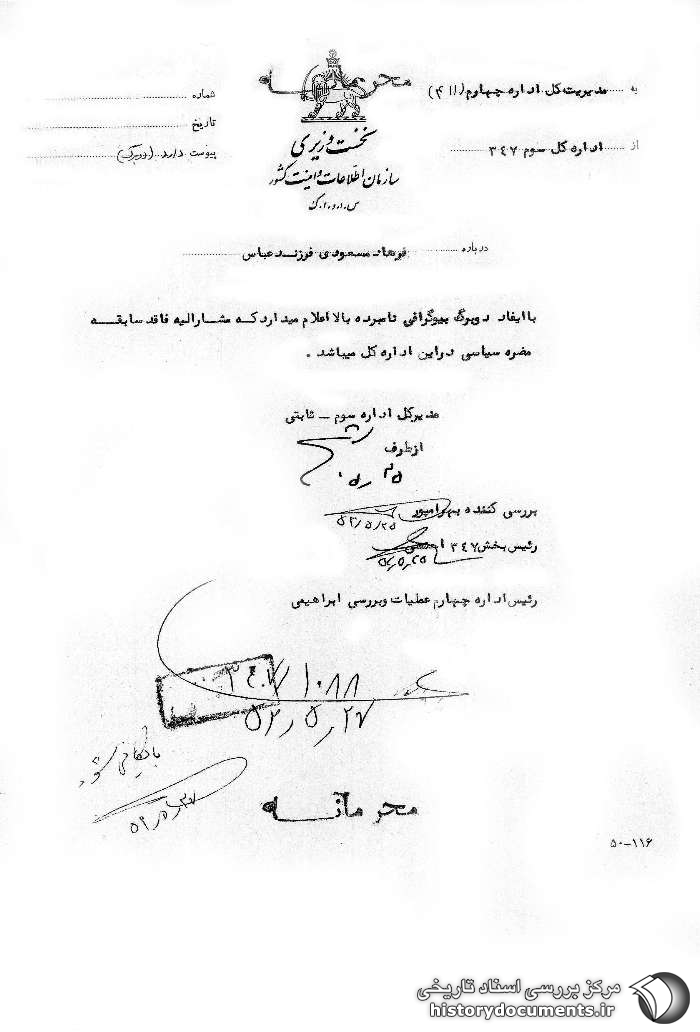 محرمانه
به مدیریت کل اداره چهارم (۴۱۱)
از اداره کل سوم ۳۴۷
شماره
تاریخ
پیوست دارد (دو برگ)
نخست وزیری
سازمان اطلاعات و امنیت کشور
س.ا.و.ا.ک
درباره فرهاد مسعودی فرزند عباس
با ایفاد دو برگ بیوگرافی نامبرده بالا اعلام میدارد که مشارالیه فاقد سابقه
مضره سیاسی در این اداره کل میباشد .
مدیرکل اداره سوم – ثابتی
از طرف
۲۵ر۵
بررسی کننده بهرامپور
۵۲/۵/۲۵
رئیس بخش ۳۴۷
۵۲ر۵ر۲۵
رئیس اداره چهارم عملیات وبررسی ابراهیمی
۳۴۷/۱۰۸۸
۵۲ر۵ر۲۷
بایگانی شود
۵۲ر۵ر۲۷
محرمانه
۵۰-۱۱۶
مرکز بررسی اسناد تاریخی
historydocuments.ir